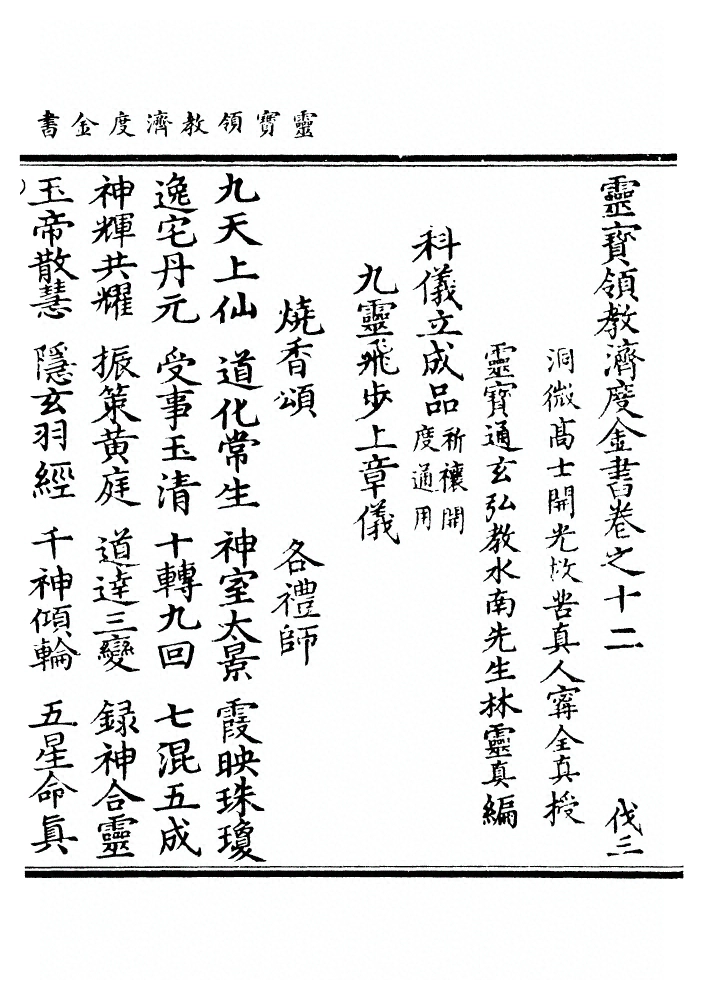 靈寶領教濟度金書
靈寶領教濟度金書卷之十二 伐三
洞微高士開光救苦真人甯全真授
靈寶通玄弘教水南先生林靈真編
科儀立成品祈禳開度通用
九靈飛步上章儀
燒香頌 各禮師
九天上仙 道化常生 神室太景 霞映珠瓊
逸宅丹元 受事玉清 十轉九回 七混五成
神輝共耀 振策黃庭 道達三變 録神合靈
玉帝散慧 隱玄羽經 千神傾輪 五星命真